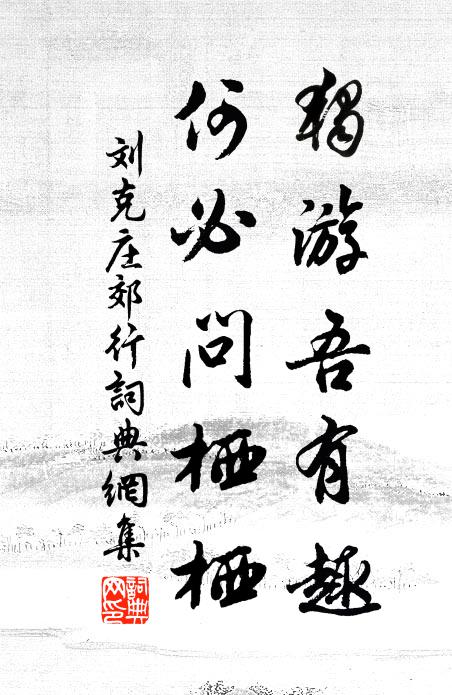 独游吾有趣
何必问栖栖
刘克庄郊行詞典網集
詞典網印